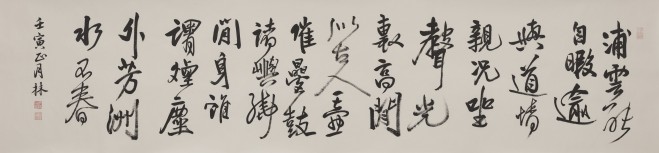 浦雲能
自暇逾
與道情
親況坐
聲光
裏高閒
似古人壺
催曼鼓
嶼
閒身誰
謂煙塵
外芳洲
水不春
壬寅正月林